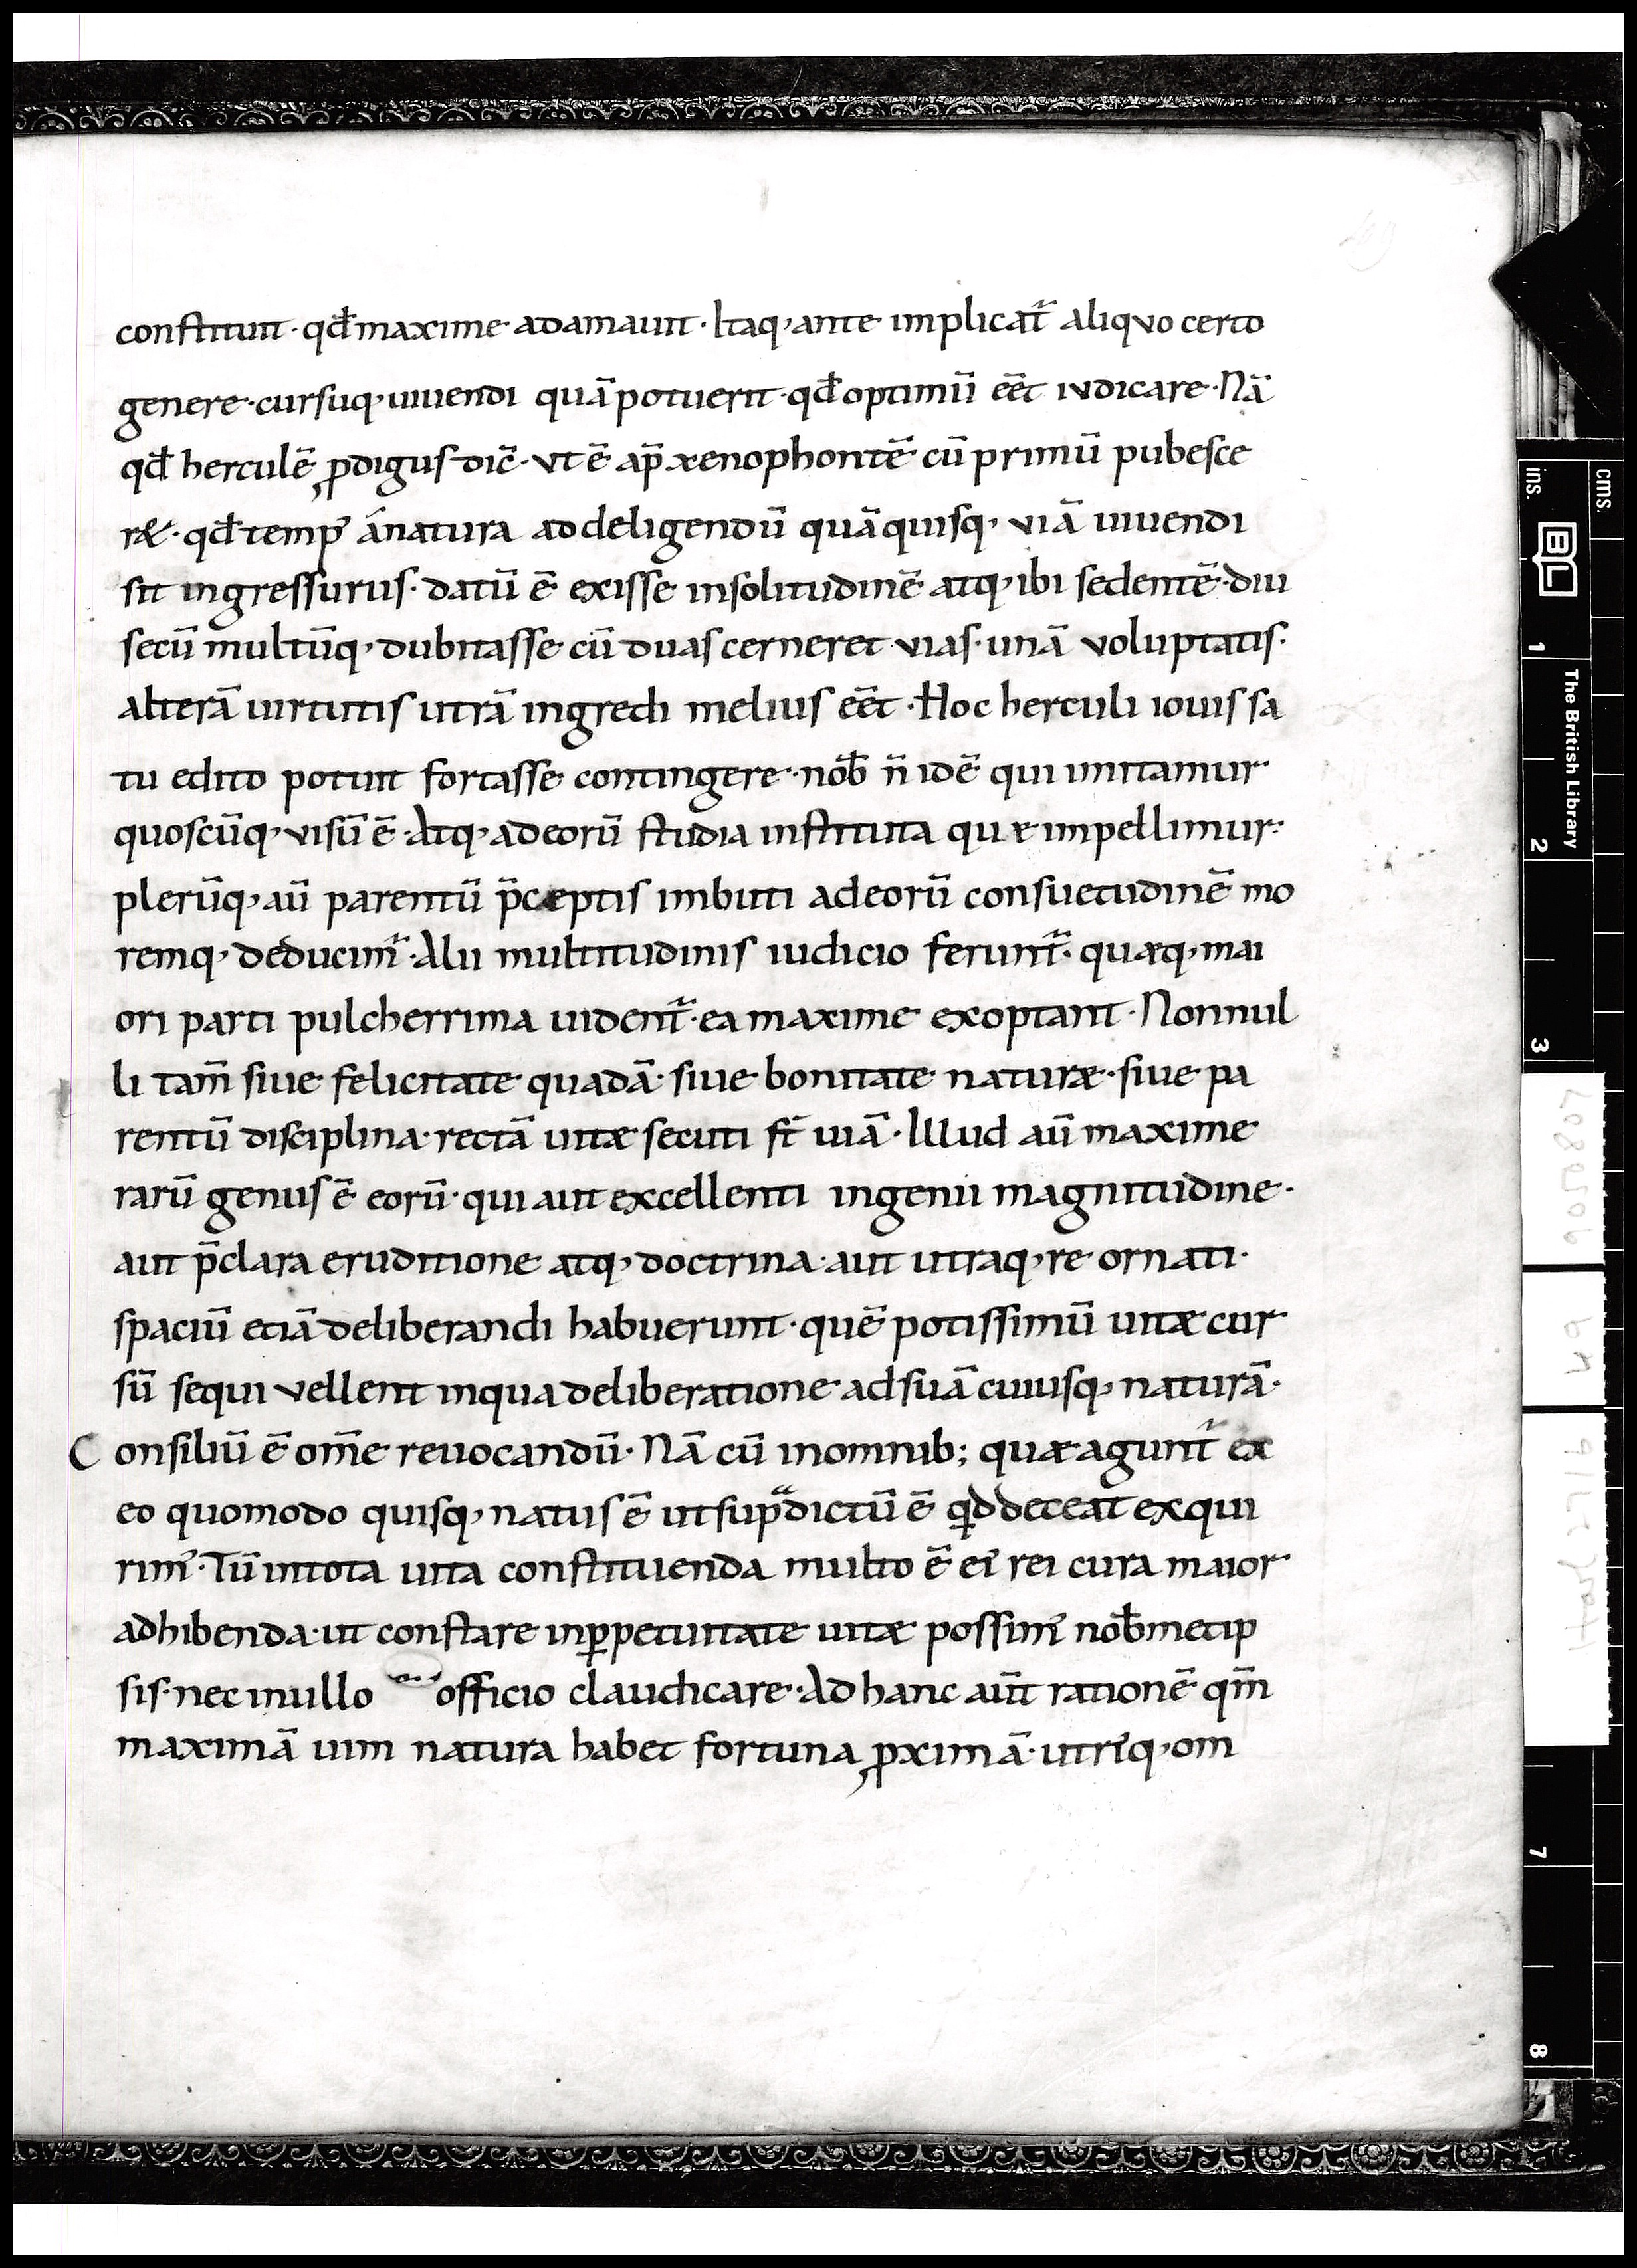 constituit · qđ maxime adamauit · Itaq, ante implicat᷑ aliquo certo
genere · cursuq, uiuendi quā potuerit · qđ optimū eēt iudicare · Nā
qđ herculē ꝓdigus dic̄ · ut ē ap̄ xenophontē cū primū pubesce
ræ · qđ temp᾽ á natura ad deligendū quā quisq, uiā uiuendi
sit ingressurus · datū ē exisse insolitudinē atq, ibi sedentē · diu
secū multūq, dubitasse cū duas cerneret uias · unā uoluptatis ·
alterā uirtutis utrā ingredi melius eēt · Hoc herculi iouis sa
tu edito potuit fortasse contingere · nob̄ n̄ idē qui imitamur
quoscūq, uisū ē · Atq, ad eorū studia instituta quæ impellimur ·
plerūq, aū parentū p̄ceptis imbuti ad eorū consuetudinē mo
remq, deducim᾽ · Alii multitudinis iudicio ferunt᷑ · quæq, mai
ori parti pulcherrima uident᷑ · ea maxime exoptant · Nonnul
li tam̄ siue felicitate quadā · siue bonitate naturæ · siue pa
rentū disciplina · rectā uitæ secuti st̄ uiā · Illud aū maxime
rarū genus ē eorū · qui aut excellenti ingenii magnitudine ·
aut p̄clara eruditione atq, doctrina · aut utraq, re ornati ·
spaciū etiā deliberandi habuerunt · quē potissimū uitæ cur
sū sequi uellent inqua deliberatione ad suā cuiusq, naturā ·
Consiliū ē om̄e reuocandū · Nā cū inomnib; quæ agunt᷑ ex
eo quomodo quisq, natus ē ut supᷓdictū ē qͥd deceat exqui
rim᾽ · Tū intota uita constituenda multo ē ei᾽ rei cura maior
adhibenda · ut constare inꝑpetuitate uitæ possim᾽ nob̄metip
sis · nec inullo officio claudicare · Ad hanc aut̄ rationē qm̄
maximā uim natura habet fortuna ꝓximā · utri᾽q, om
The British Library
BL
ins.
cms.
1
2
3
7
8